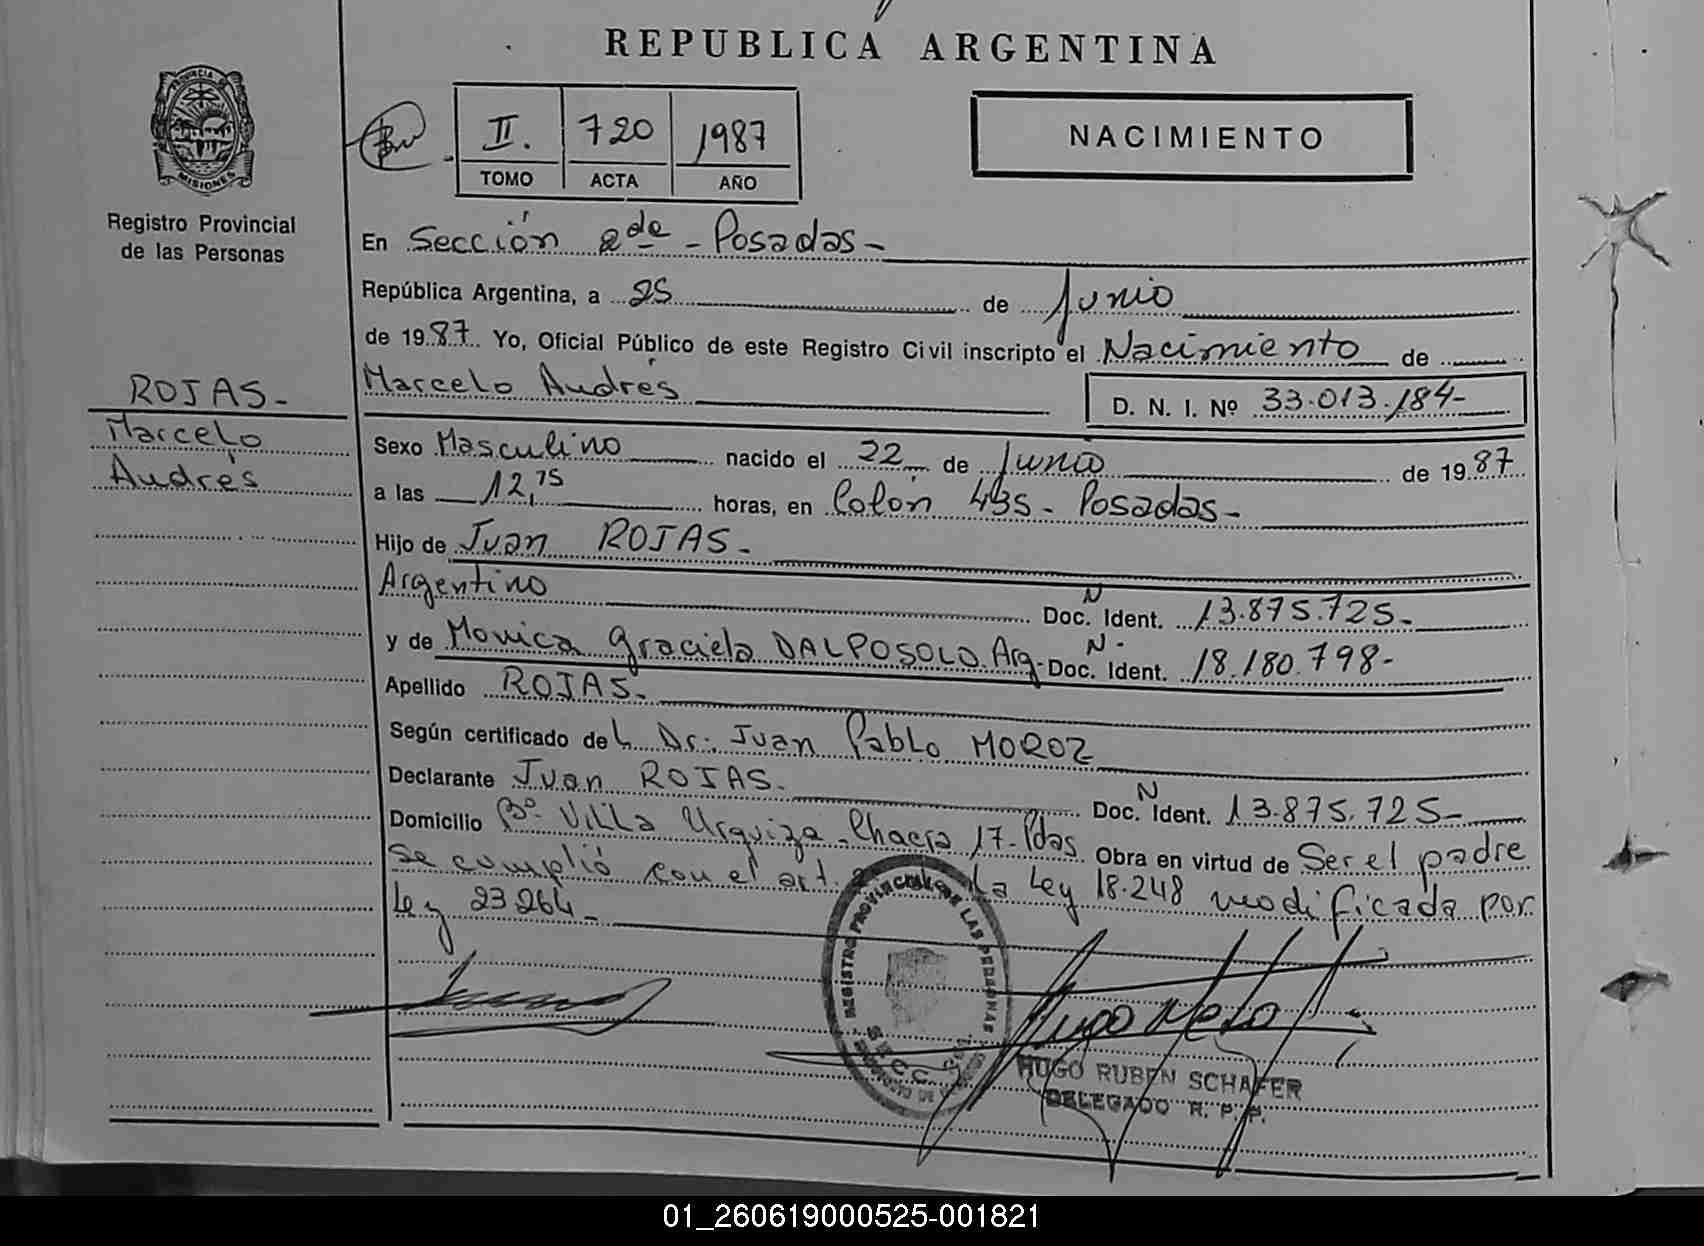 REPUBLICA ARGENTINA
PROVINCIA DE
MISIONES
Registro Provincial
de las Personas
II. 720 1987
TOMO ACTA AÑO
NACIMIENTO
En Sección 2da - Posadas -
República Argentina, a 25 de Junio
de 1987. Yo, Oficial Público de este Registro Civil inscripto el Nacimiento de
Marcelo Andrés
D. N. I. Nº 33.013.184-
ROJAS-
Marcelo
Andrés
Sexo Masculino nacido el 22 de Junio de 1987
a las 12,15 horas, en Colón 435 - Posadas -
Hijo de Juan ROJAS -
Argentino Doc. N Ident. 13.875.725-
y de Monica Graciela DALPOSOLO. Arg- Doc. N- Ident. 18.180.798-
Apellido ROJAS.
Según certificado del Dr. Juan Pablo MOROZ
Declarante Juan ROJAS. Doc. N Ident. 13.875.725-
Domicilio Bº Villa Urquiza - Chacra 17 - Pdas. Obra en virtud de Ser el padre
se cumplió con el art. La Ley 18.248 modificada por
Ley 23264 -
REGISTRO PROVINCIAL DE LAS PERSONAS
SECC.
HUGO RUBEN SCHAFER
DELEGADO R. P. P.
01_260619000525-001821